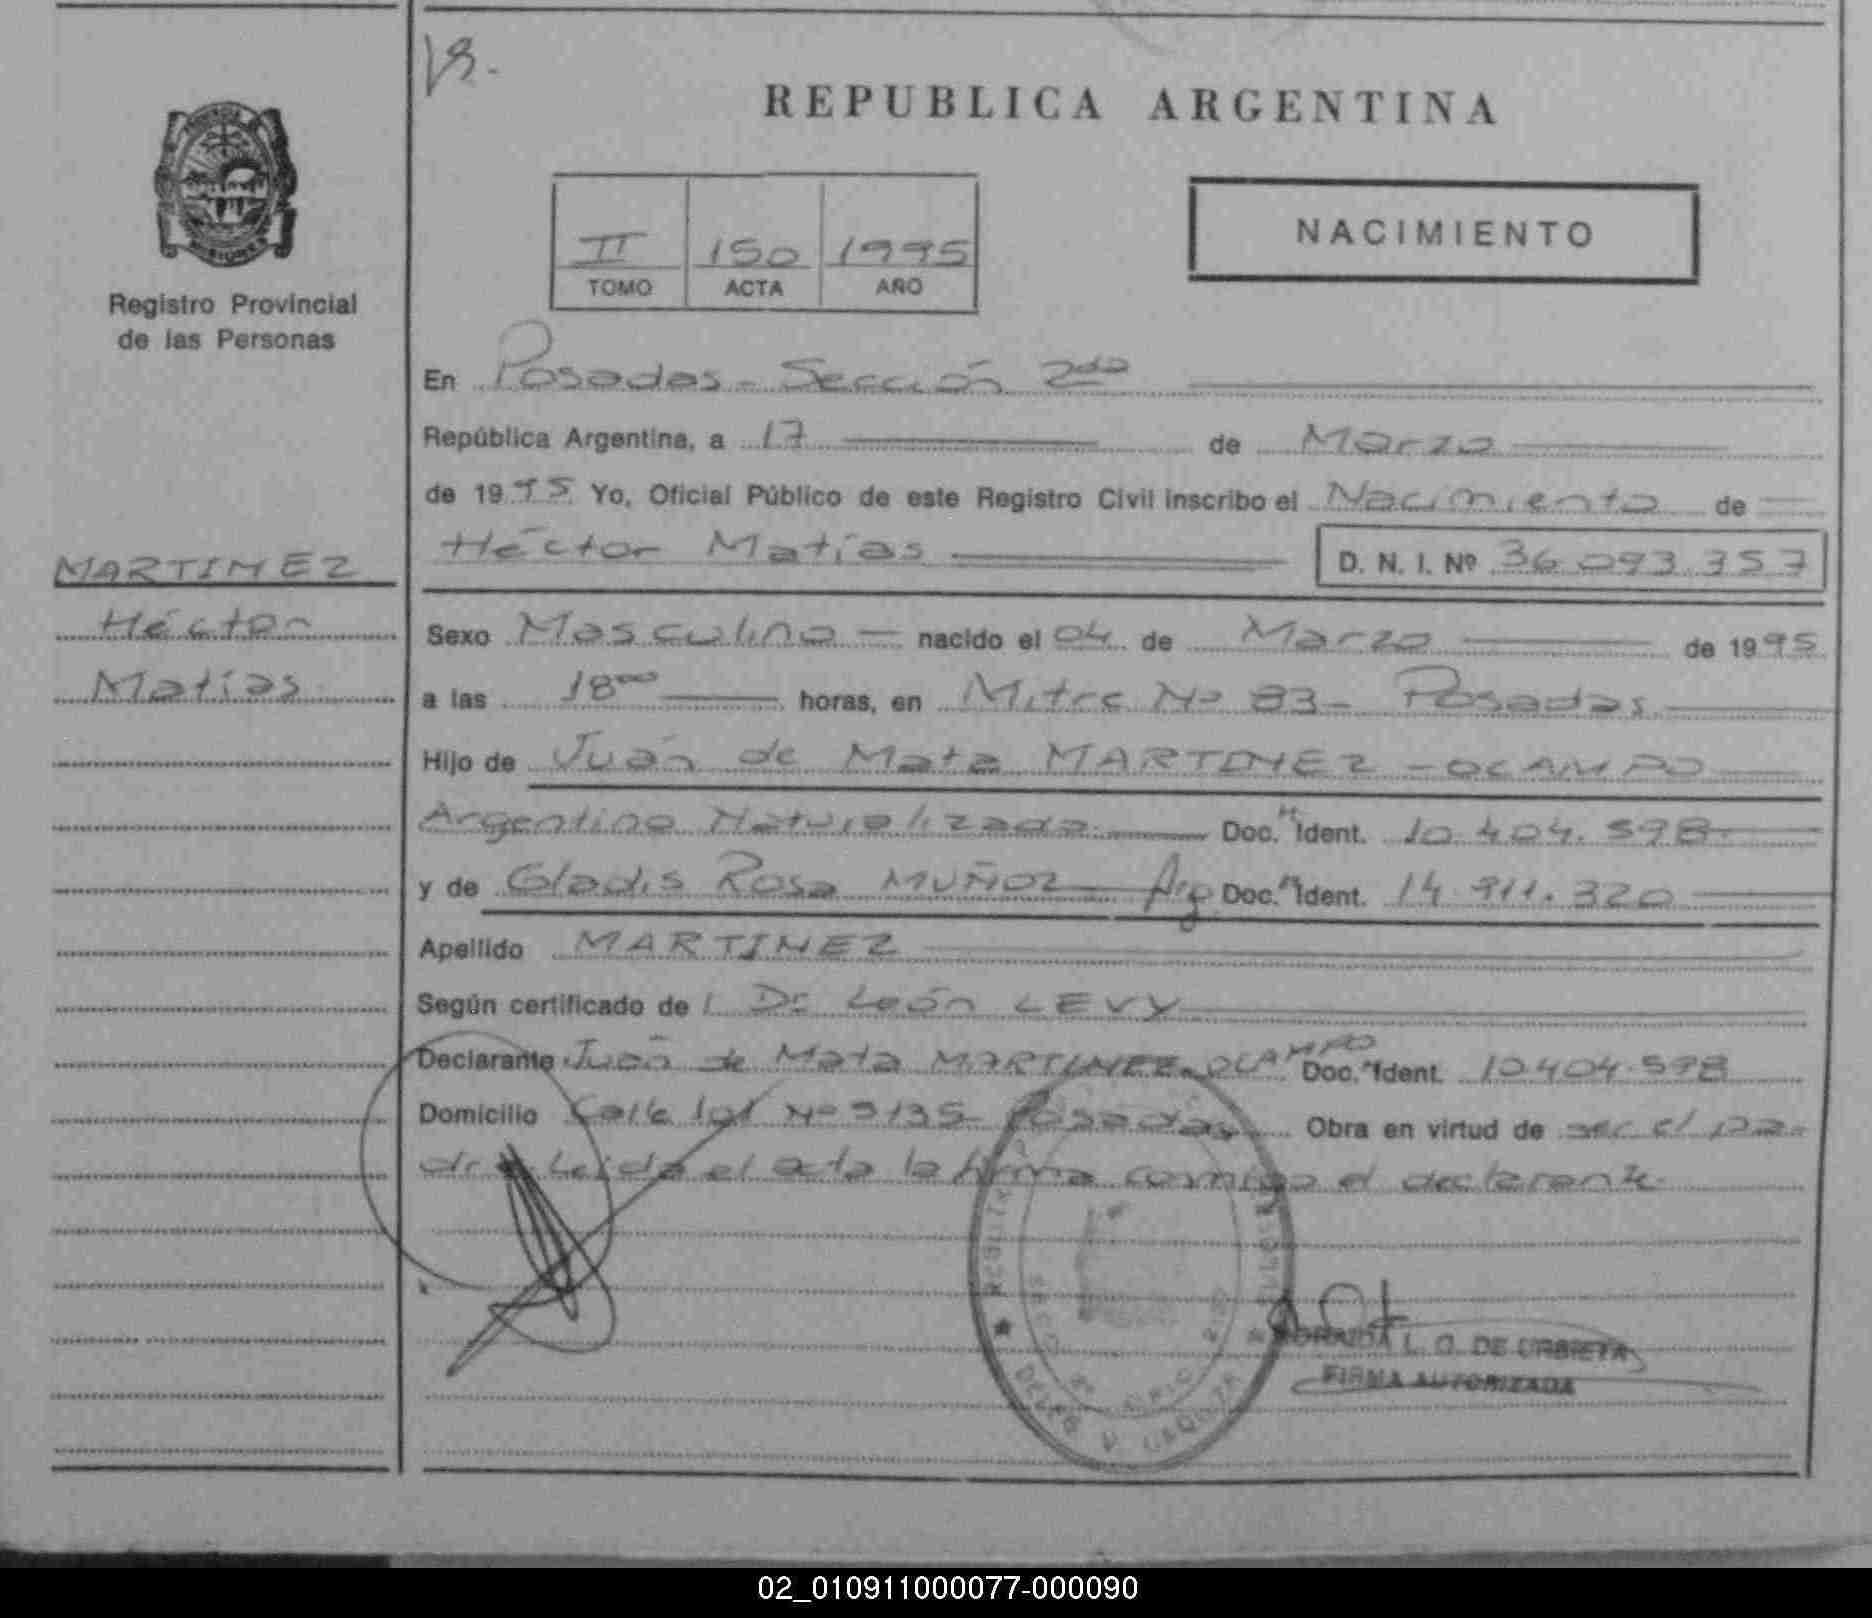 REPUBLICA ARGENTINA
NACIMIENTO
II 150 1995
TOMO ACTA AÑO
Registro Provincial
de las Personas
En Posadas - Sección 2da
República Argentina, a 17 de Marzo
de 1995 Yo, Oficial Público de este Registro Civil inscribo el Nacimiento de
Héctor Matías D. N. I. Nº 36.093.357
MARTINEZ
Héctor
Matías
Sexo Masculino nacido el 04 de Marzo de 1995
a las 18⁰⁰ horas, en Mitre Nº 83 - Posadas
Hijo de Juan de Mata MARTINEZ - OCAMPO
Argentino Naturalizado Doc. Ident. 10.404.598
y de Gladis Rosa MUÑOZ Arg Doc. Ident. 14.911.320
Apellido MARTINEZ
Según certificado de l Dr León LEVY
Declarante Juan de Mata MARTINEZ - OCAMPO Doc. Ident. 10.404.598
Domicilio Calle 101 Nº 5135 - Posadas Obra en virtud de ser el pa-
dre Leída el acta la firma conmigo el declarante
L. G. DE URBIETA
FIRMA AUTORIZADA
02_010911000077-000090